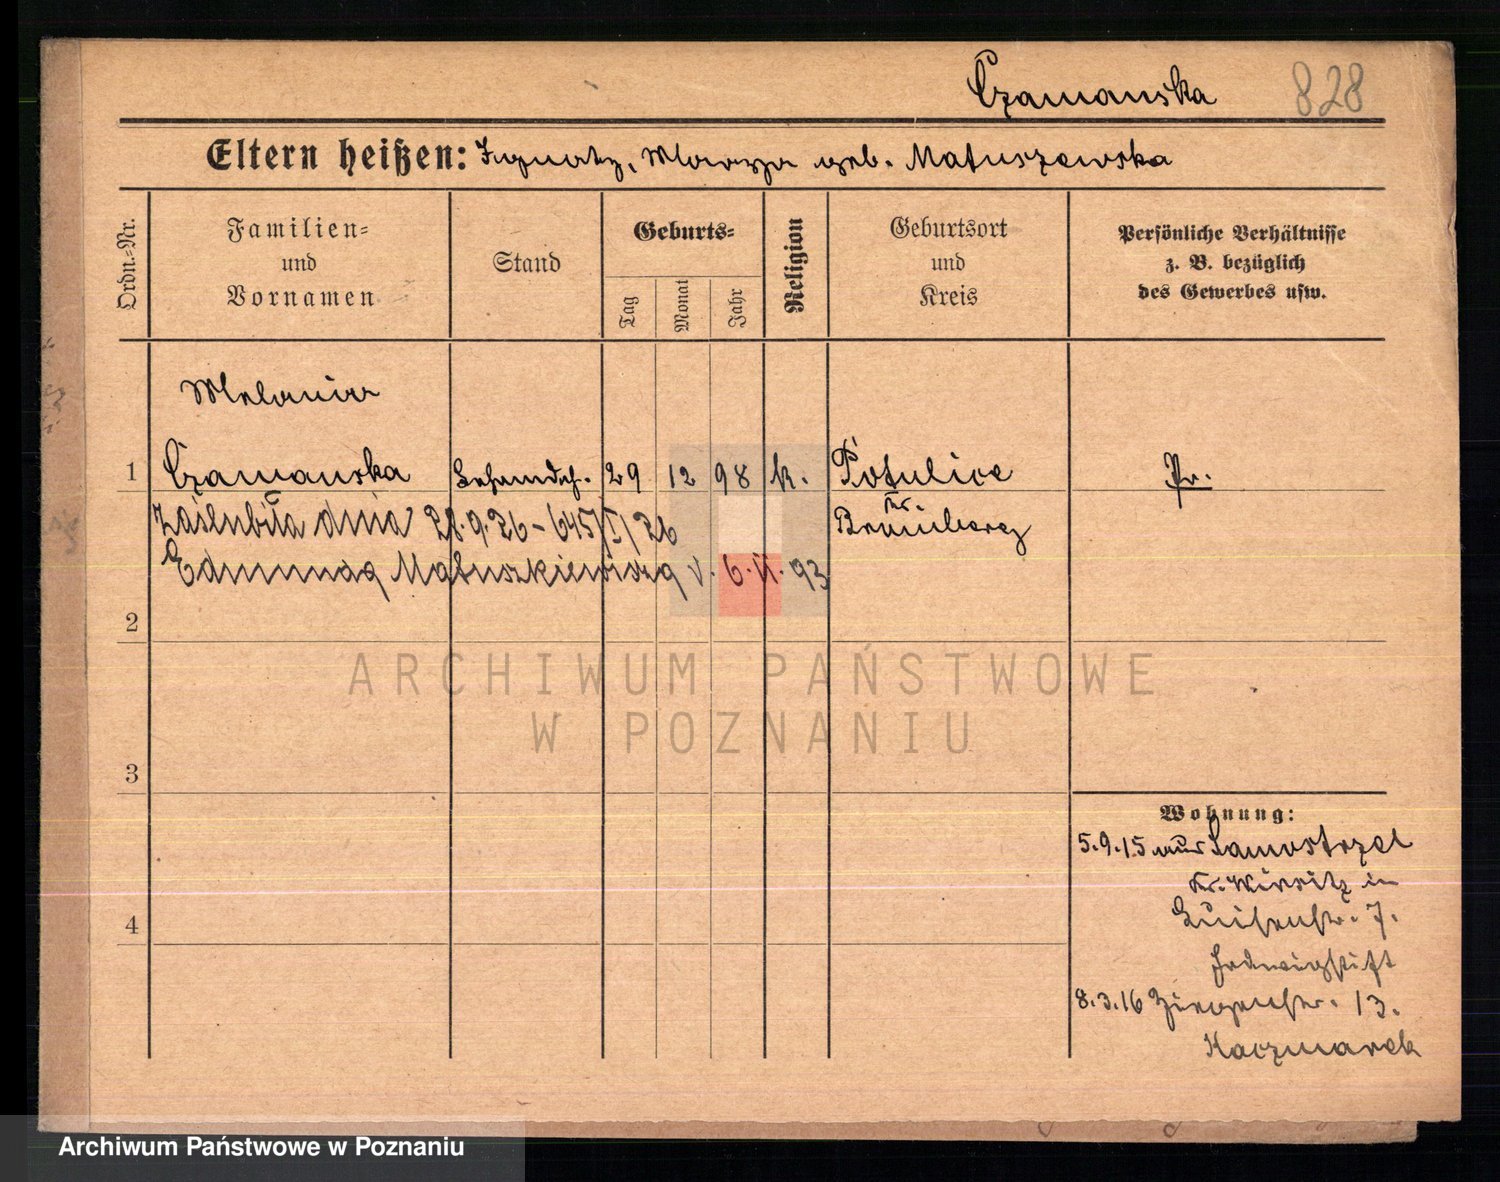 Czamanska 828
Eltern heißen: Ignatz, Marya geb. Matuszewska
Ordn.-Nr.
Familien-
und
Vornamen
Stand
Geburts-
Tag
Monat
Jahr
Religion
Geburtsort
und
Kreis
Persönliche Verhältnisse
z. B. bezüglich
des Gewerbes usw.
Melania
1 Czamanska 29 12 98 k. Potulice Pr.
Zaślubiła dnia 28.9.26 - 645/I/26
Kr.
Bromberg
Edmunda Matuszkiewicza 6.II.93
2
3
4
Wohnung:
5.9.15 aus Samostrzel
Kr. Wirsitz in
Luisenstr. 7.
Hedwigstift
8.3.16 13.
Kaczmarek
ARCHIWUM PAŃSTWOWE
W POZNANIU
Archiwum Państwowe w Poznaniu